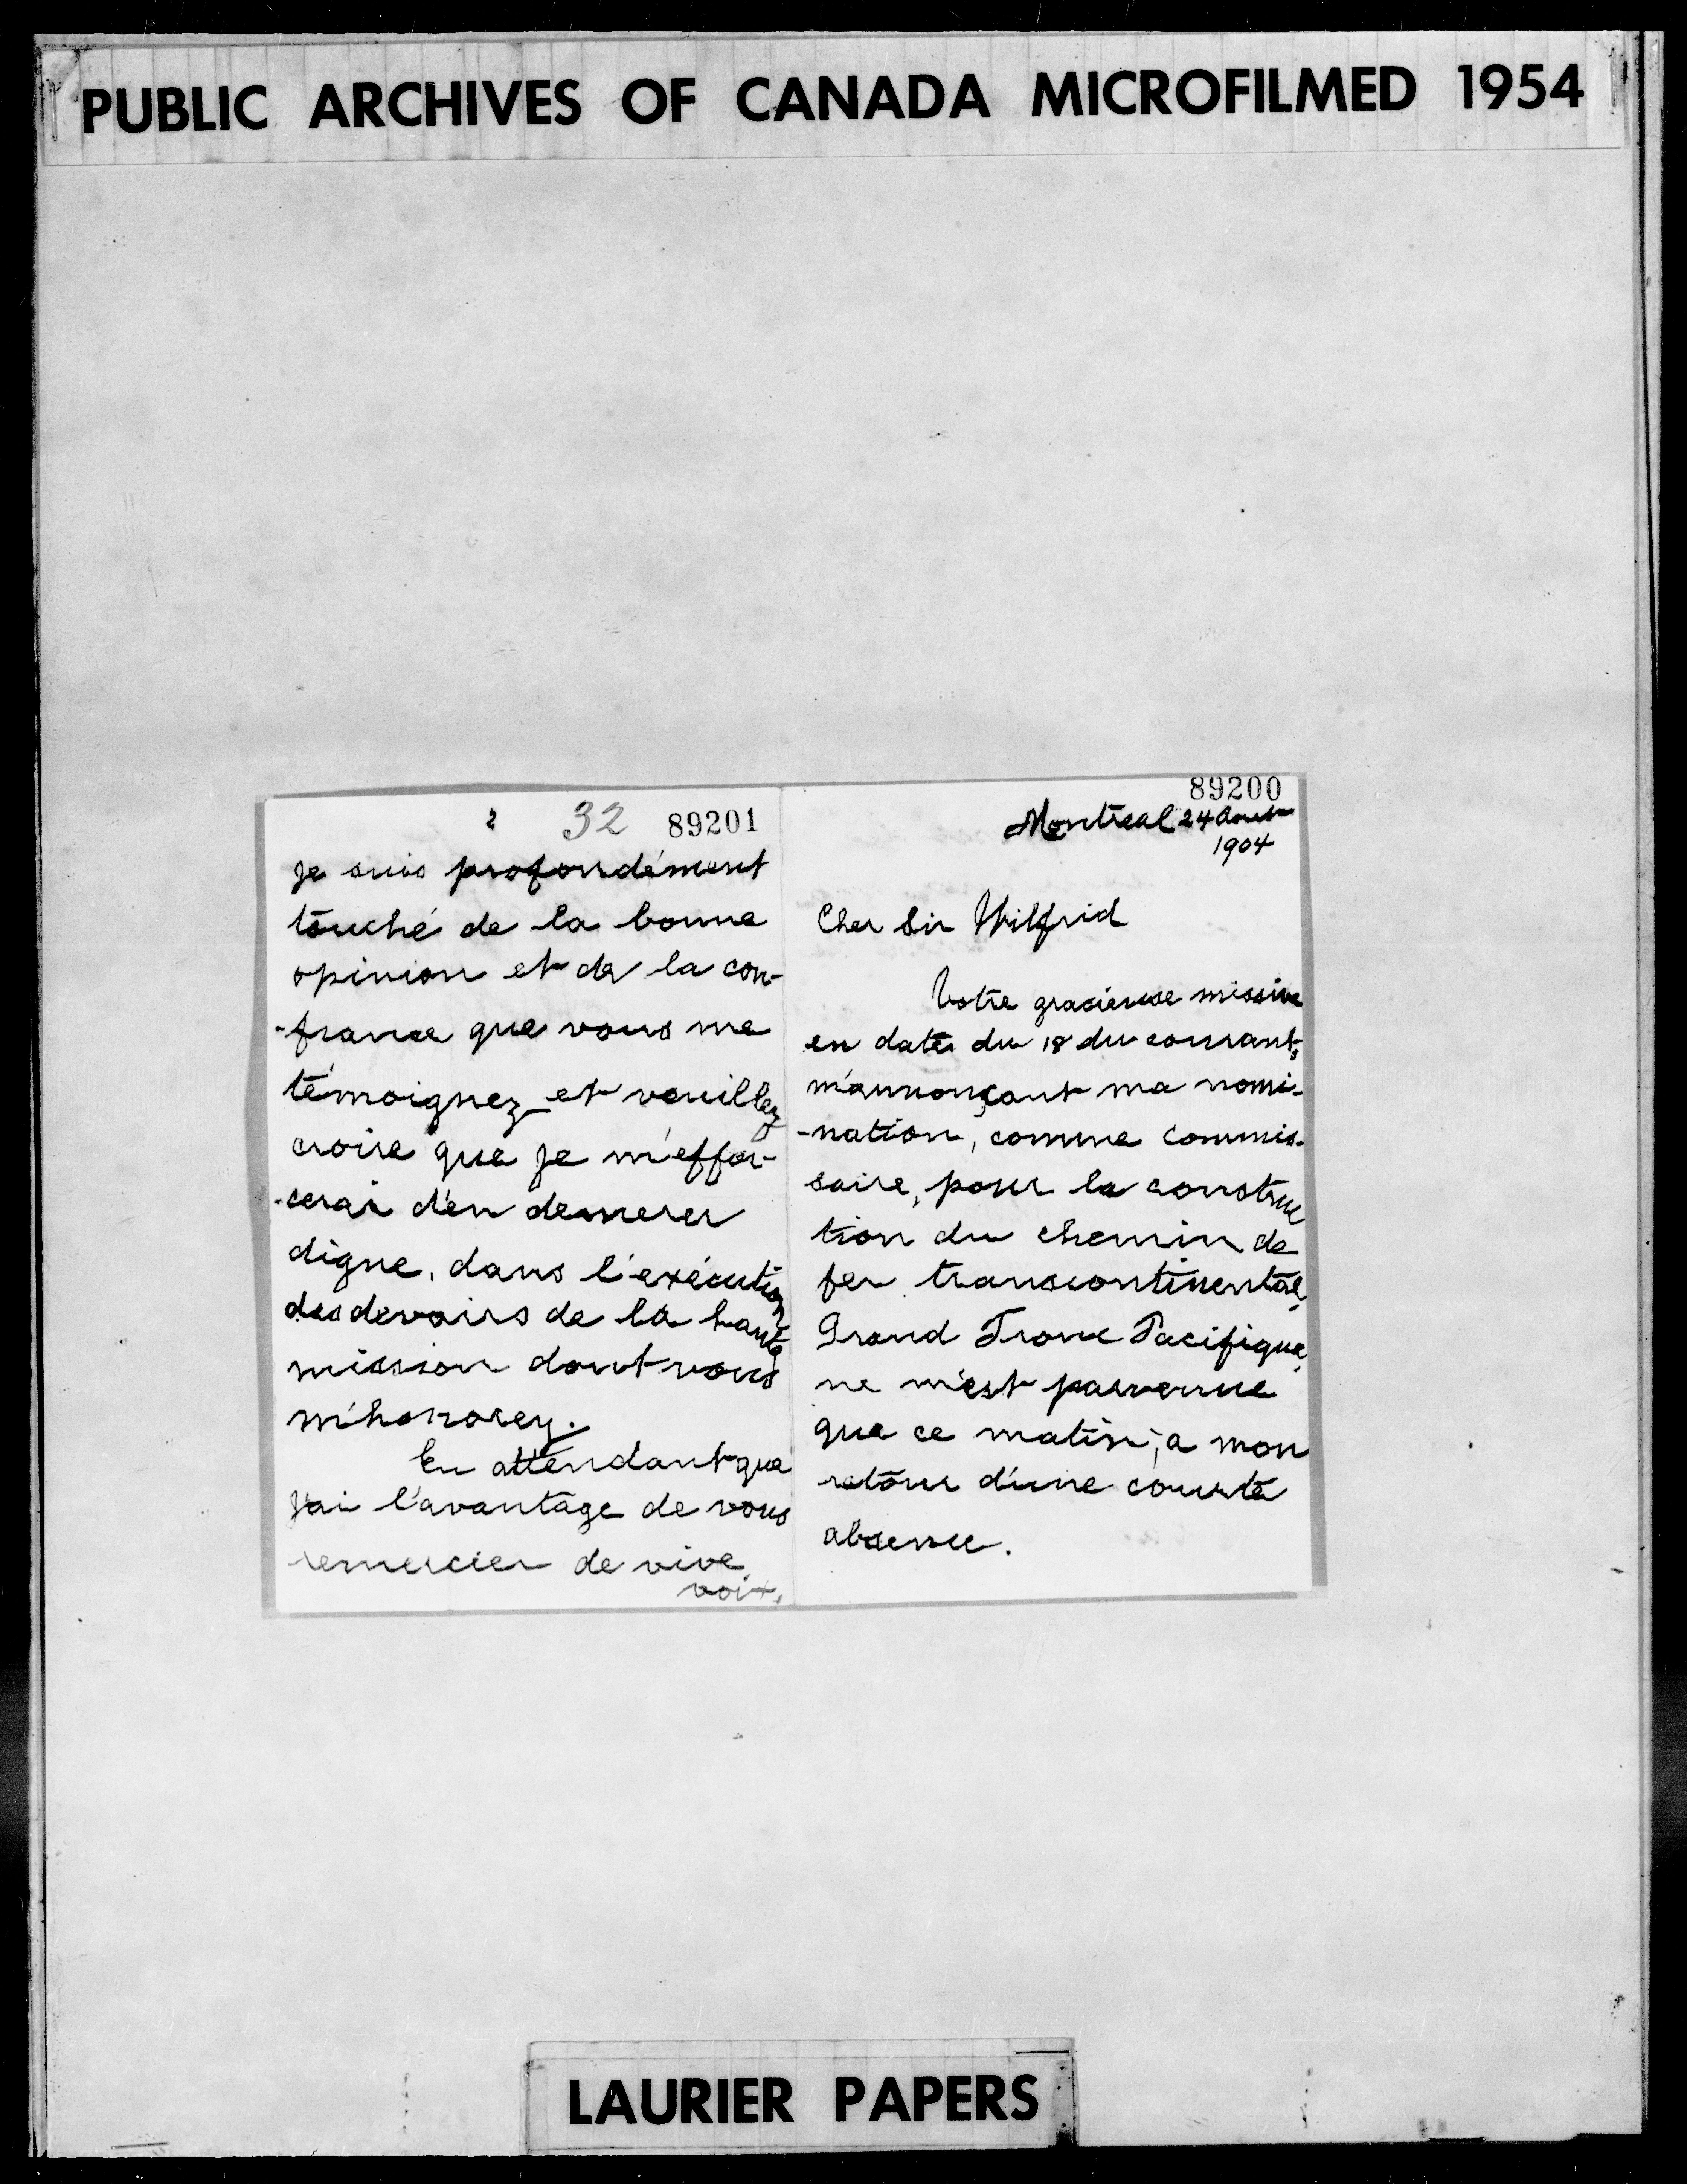 PUBLIC ARCHIVES OF CANADA MICROFILMED 1954
89200
Montreal 24 Aout
1904
Cher Sir Wilfrid
Votre gracieuse missive
en date du 18 du courant,
m'annonçant ma nomi-
-nation, comme commis-
saire, pour la construc
tion du chemin de
fer transcontinental,
Grand Tronc Pacifique,
ne m'est parvenue
que ce matin, a mon
retour d'une courte
absence.
2 32 89201
Je suis profondément
touché de la bonne
opinion et de la con-
-fiance que vous me
témoignez et veuillez
croire que je m'effor-
-cerai d'en demeurer
digne, dans l'exécution
des devoirs de la haute
mission dont vous
m'honorez.
En attendant que
j'ai l'avantage de vous
remercier de vive
voix,
LAURIER PAPERS